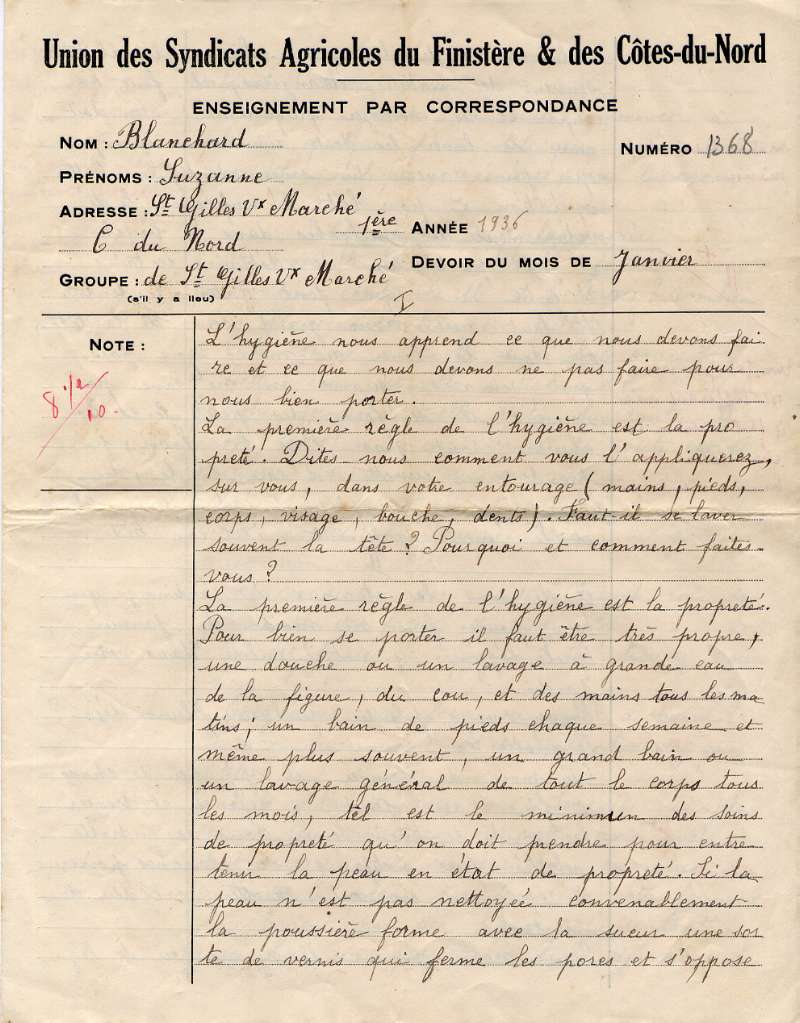 Union des Syndicats Agricoles du Finistère & des Côtes-du-Nord
ENSEIGNEMENT PAR CORRESPONDANCE
NOM : Blanchard
NUMÉRO 1368
PRÉNOMS : Suzanne
ADRESSE : St Gilles Vx Marché
C du Nord
1ère ANNÉE 1936
DEVOIR DU MOIS DE Janvier
GROUPE : de St Gilles Vx Marché
(s'il y a lieu)
I
NOTE :
8 1/2/10.
L'hygiène nous apprend ce que nous devons fai
re et ce que nous devons ne pas faire pour
nous bien porter.
La première règle de l'hygiène est la pro
preté. Dites nous comment vous l'appliquerez,
sur vous, dans votre entourage (mains, pieds,
corps, visage, bouche, dents). Faut-il se laver
souvent la tête ? Pourquoi et comment faites
vous ?
La première règle de l'hygiène est la propreté.
Pour bien se porter il faut être très propre,
une douche ou un lavage à grande eau
de la figure, du cou, et des mains tous les ma
tins ; un bain de pieds chaque semaine et
même plus souvent, un grand bain ou
un lavage général de tout le corps tous
les mois, tel est le minimum des soins
de propreté qu'on doit prendre pour entre
tenir la peau en état de propreté. Si la
peau n'est pas nettoyée convenablement
la poussière forme avec la sueur une sor
te de vernis qui ferme les pores et s'oppose